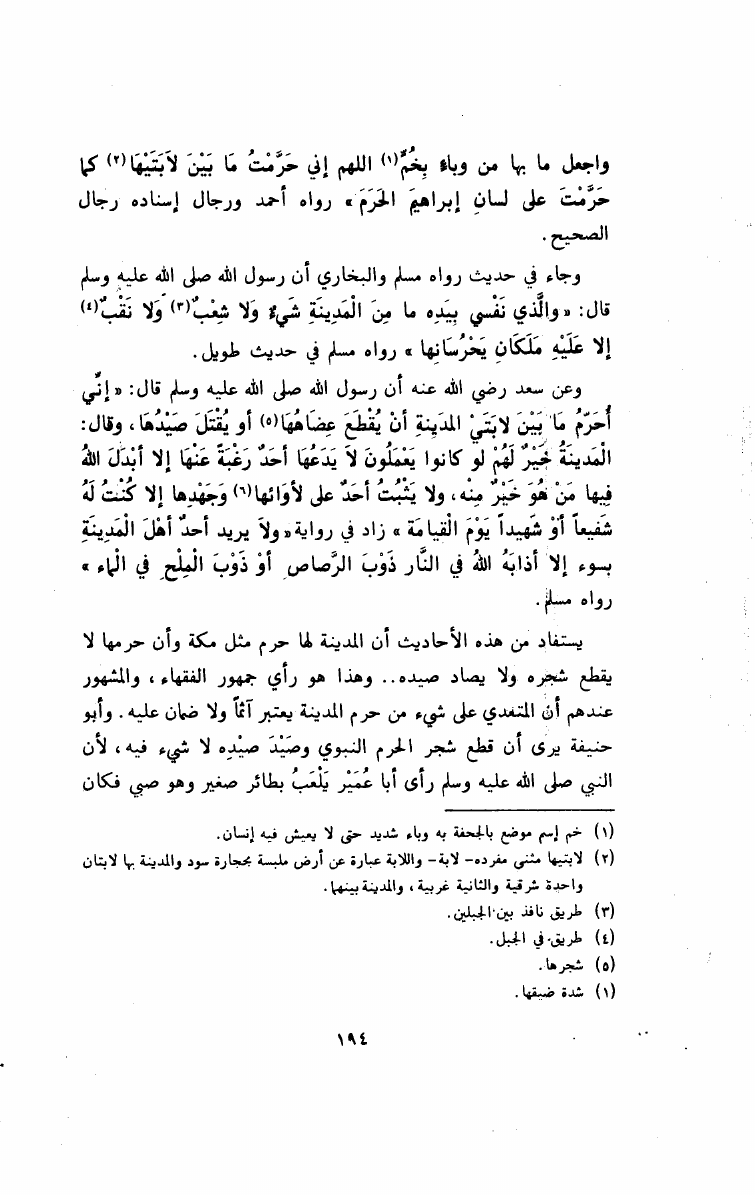 واجعل ما بها من وباء بِخُمٍّ(١) اللهم إني حَرَّمْتُ مَا بَيْنَ لاَبَتَيْهَا(٢) كما
حَرَّمْتَ على لسانِ إبراهيمَ الحَرَمَ» رواه أحمد ورجال إسناده رجال
الصحيح.
وجاء في حديث رواه مسلم والبخاري أن رسول الله صلى الله عليه وسلم
قال: «والَّذي نَفْسي بِيَدِه ما مِنَ الْمَدِينَةِ شَيءٌ وَلا شِعْبٌ(٣) وَلا نَقْبٌ(٤)
إلا عَلَيْهِ مَلَكَانِ يَحْرُسَانِها» رواه مسلم في حديث طويل.
وعن سعد رضي الله عنه أن رسول الله صلى الله عليه وسلم قال: «إنِّي
أُحَرِّمُ مَا بَيْنَ لابَتَيْ المَدِينةِ أنْ يُقْطَعَ عِضَاهُهَا(٥) أو يُقْتَلَ صَيْدُهَا، وقال:
الْمَدينَةُ خَيْرٌ لَهُمْ لو كانوا يَعْمَلُونَ لاَ يَدَعُهَا أحَدٌ رَغْبَةً عَنْهَا إلا أَبْدَلَ اللهُ
فِيها مَنْ هُوَ خَيْرٌ مِنْه، ولا يَثْبُتُ أحَدٌ على لأوَائها(٦) وَجَهْدِها إلا كُنْتُ لَهُ
شَفيعاً أوْ شَهيداً يَوْمَ الْقيامَة» زاد في رواية «ولاَ يريد أحدٌ أهْلَ الْمَدِينَةِ
بسوء إلا أذابَهُ اللهُ في النَّار ذَوْبَ الرَّصاص أوْ ذَوْبَ الْمِلْح في الْماء»
رواه مسلم.
يستفاد من هذه الأحاديث أن المدينة لها حرم مثل مكة وأن حرمها لا
يقطع شجره ولا يصاد صيده.. وهذا هو رأي جمهور الفقهاء، والمشهور
عندهم أن المتعدي على شيء من حرم المدينة يعتبر آثماً ولا ضمان عليه. وأبو
حنيفة يرى أن قطع شجر الحرم النبوي وصَيْدَ صيْدِه لا شيء فيه، لأن
النبي صلى الله عليه وسلم رأى أبا عُمَيْر يَلْعَبُ بطائر صغير وهو صبي فكان
(١) خم إسم موضع بالجحفة به وباء شديد حتى لا يعيش فيه إنسان.
(٢) لابتيها مثنى مفرده- لابة- واللابة عبارة عن أرض ملبسة بحجارة سود والمدينة بها لابتان
واحدة شرقية والثانية غربية، والمدينة بينهما.
(٣) طريق نافذ بين الجبلين.
(٤) طريق في الجبل.
(٥) شجرها.
(١) شدة ضيقها.
١٩٤